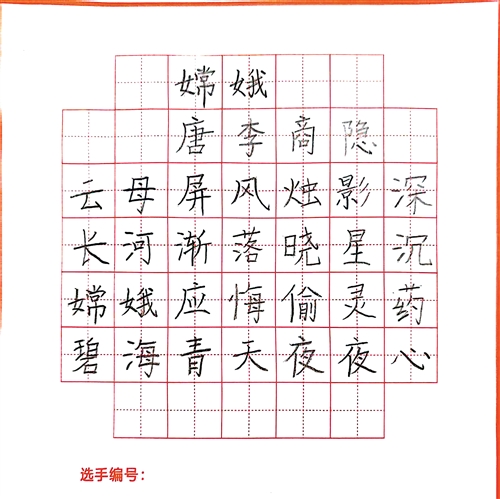 嫦娥
唐李商隐
云母屏风烛影深
长河渐落晓星沉
嫦娥应悔偷灵药
碧海青天夜夜心
选手编号：